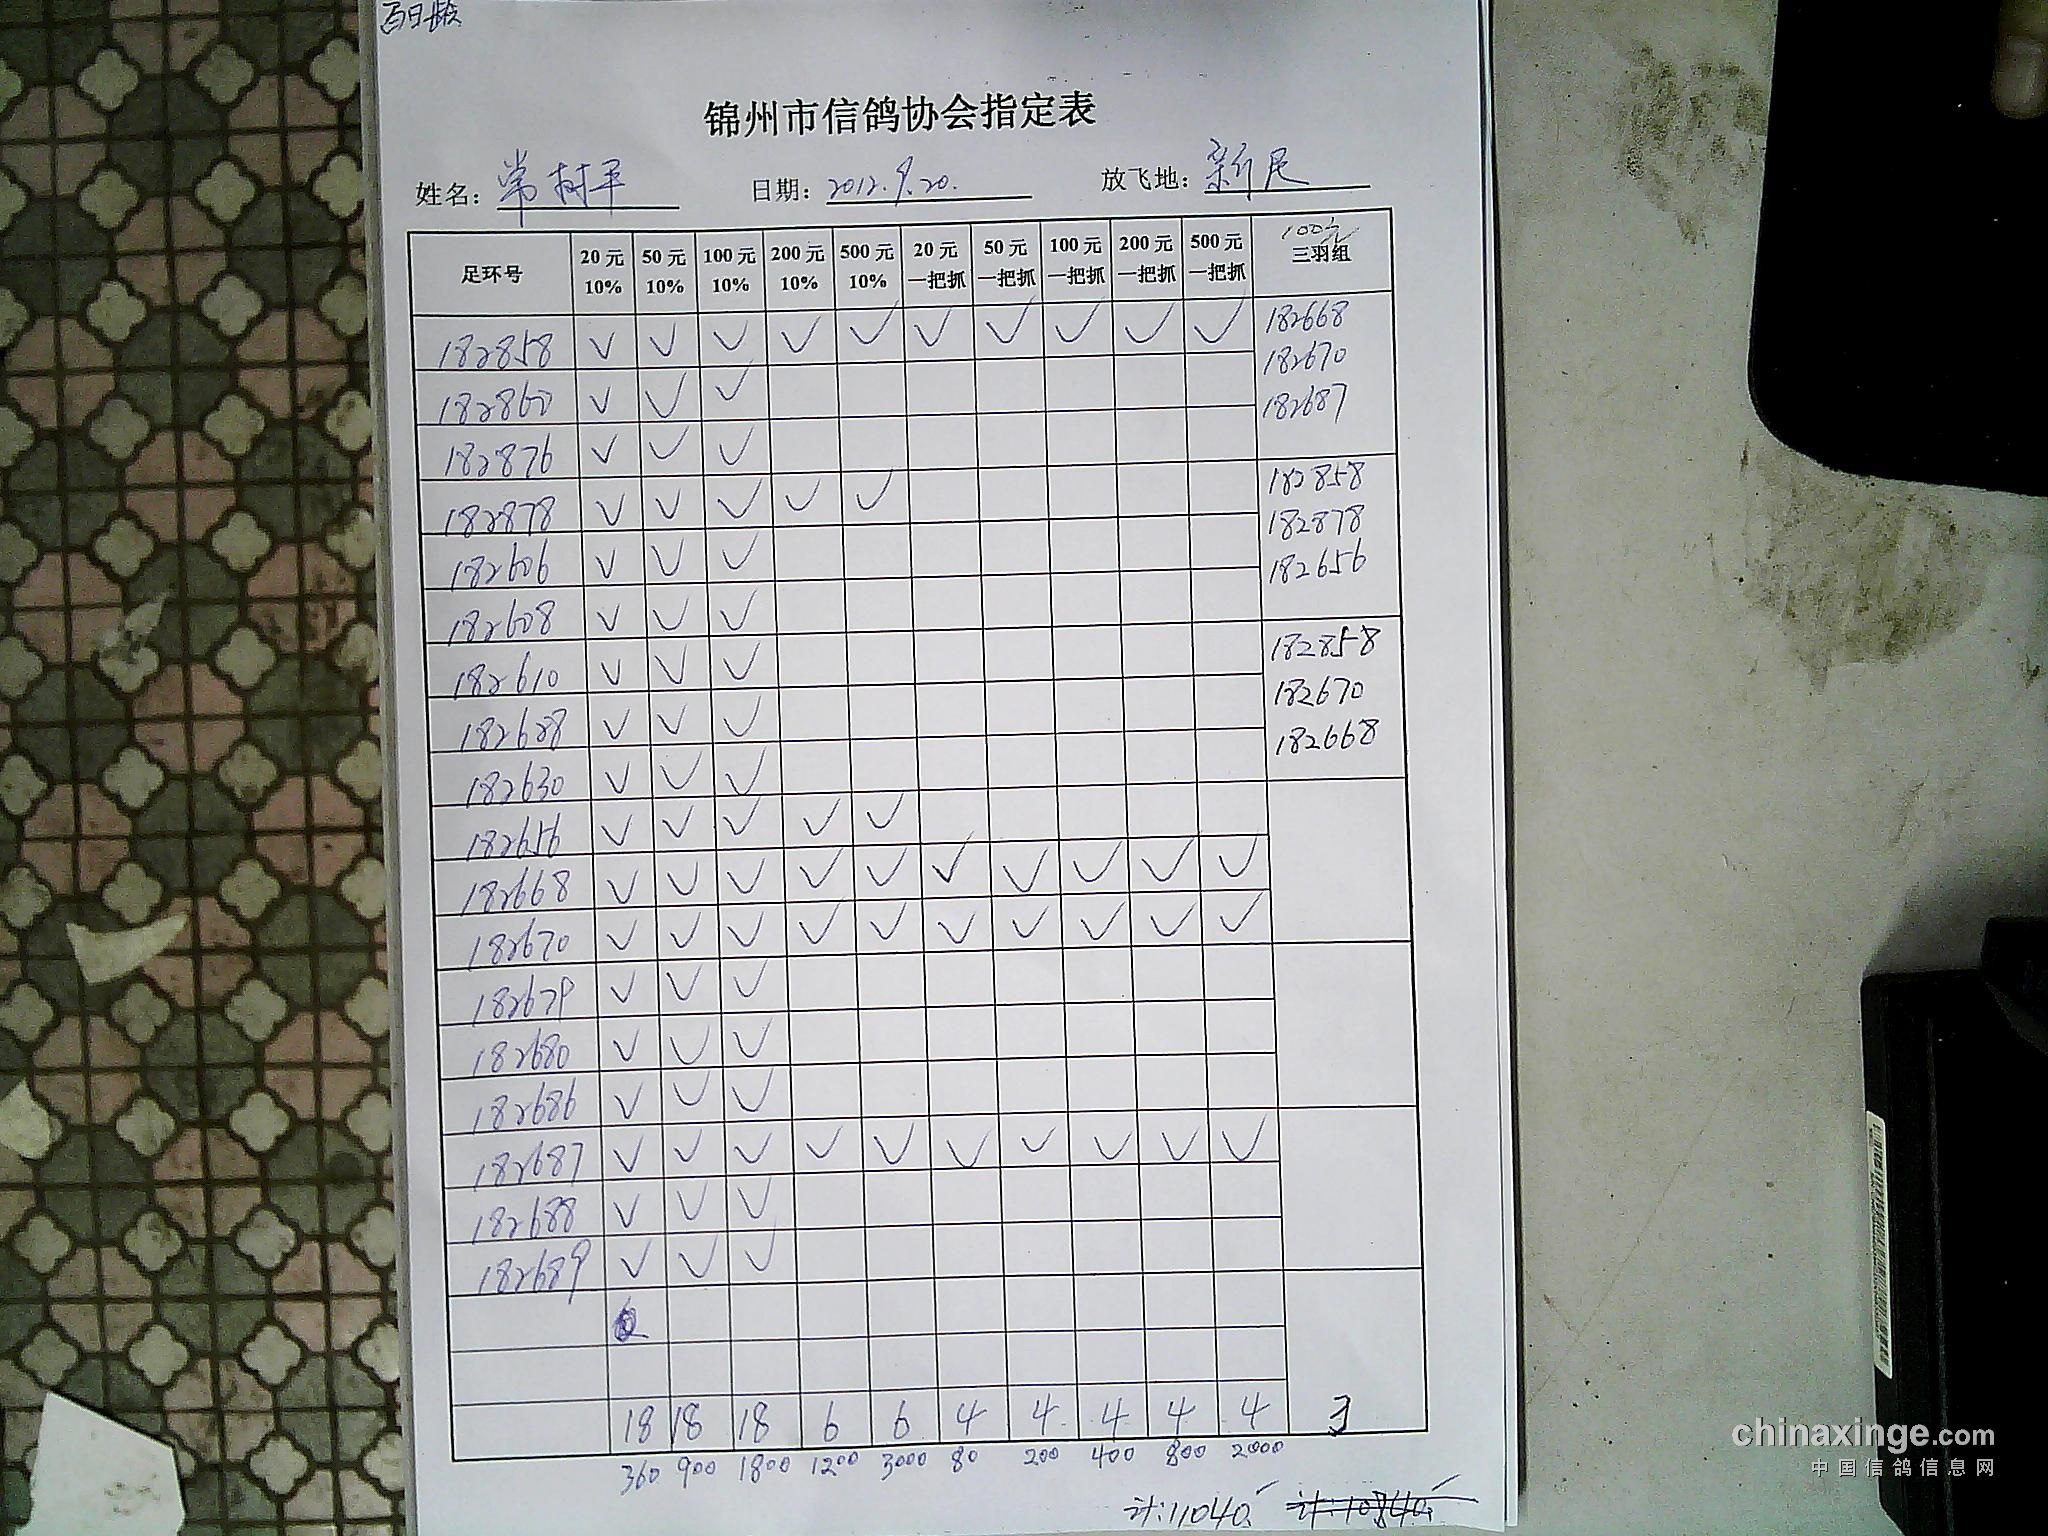 百日龄
锦州市信鸽协会指定表
姓名: 常树平 日期: 2012.9.20. 放飞地:
足环号 20元10% 50元10% 100元10% 200元10% 500元10% 20元一把抓 50元一把抓 100元一把抓 200元一把抓 500元一把抓 100元三羽组
182858 √ √ √ √ √ √ √ √ √ √
182860 √ √ √
182876 √ √ √
182878 √ √ √ √ √
182606 √ √ √
182608 √ √ √
182610 √ √ √
182628 √ √ √
182630 √ √ √
182656 √ √ √ √ √
182668 √ √ √ √ √ √ √ √ √ √
182670 √ √ √ √ √ √ √ √ √ √
182679 √ √ √
182680 √ √ √
182686 √ √ √
182687 √ √ √ √ √ √ √ √ √ √
182688 √ √ √
182689 √ √ √
182668
182670
182687
182858
182878
182656
182858
182670
182668
18 18 18 6 6 4 4 4 4 4 3
360 900 1800 1200 3000 80 200 400 800 2000
计:11040. 计:10840.
chinaxinge.com
中国信鸽信息网